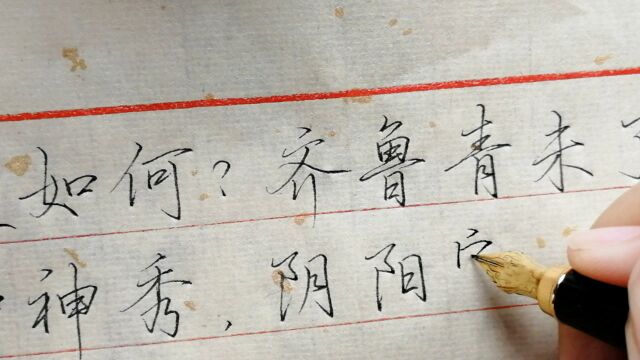 如何?齐鲁青未
神秀,阴阳